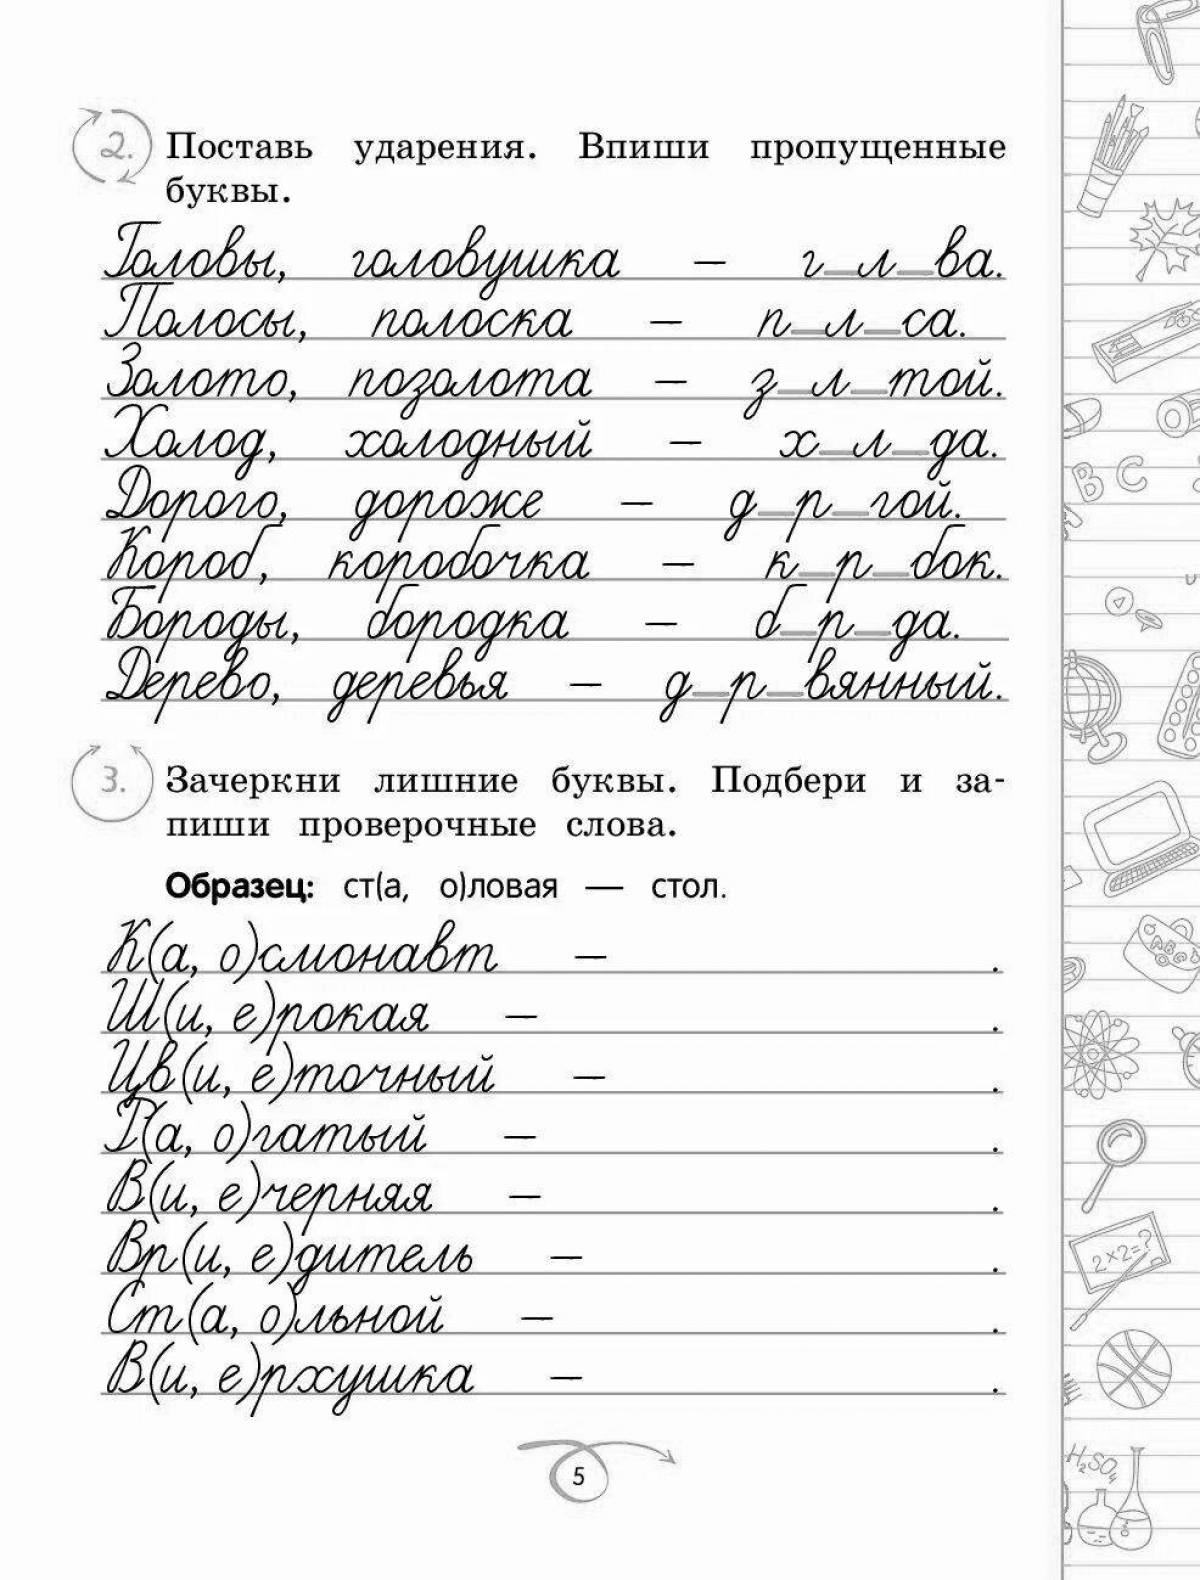 2. Поставь ударения. Впиши пропущенные
буквы.
Головы, головушка – г_л_ва.
Полосы, полоска – п_л_са.
Золото, позолота – з_л_той.
Холод, холодный – х_л_да.
Дорого, дороже – д_р_гой.
Короб, коробочка – к_р_бок.
Бороды, бородка – б_р_да.
Дерево, деревья – д_р_вянный.
3. Зачеркни лишние буквы. Подбери и за-
пиши проверочные слова.
Образец: ст(а, о)ловая — стол.
К(а, о)смонавт – .
Ш(и, е)рокая – .
Цв(и, е)точный – .
Г(а, о)гатый – .
В(и, е)черняя – .
Вр(и, е)дитель – .
Ст(а, о)льной – .
В(и, е)рхушка – .
5
B C
ABC
2×2=?
H₂SO₄